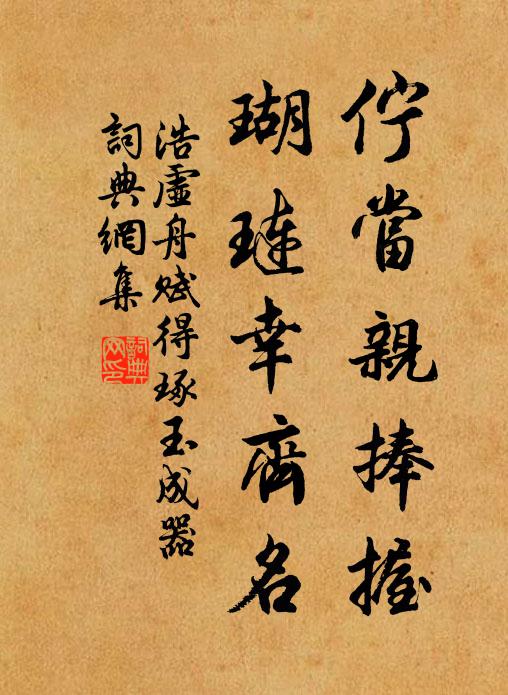 佇當親捧握
瑚璉幸齊名
浩虛舟賦得琢玉成器
詞典網集
詞典
网印